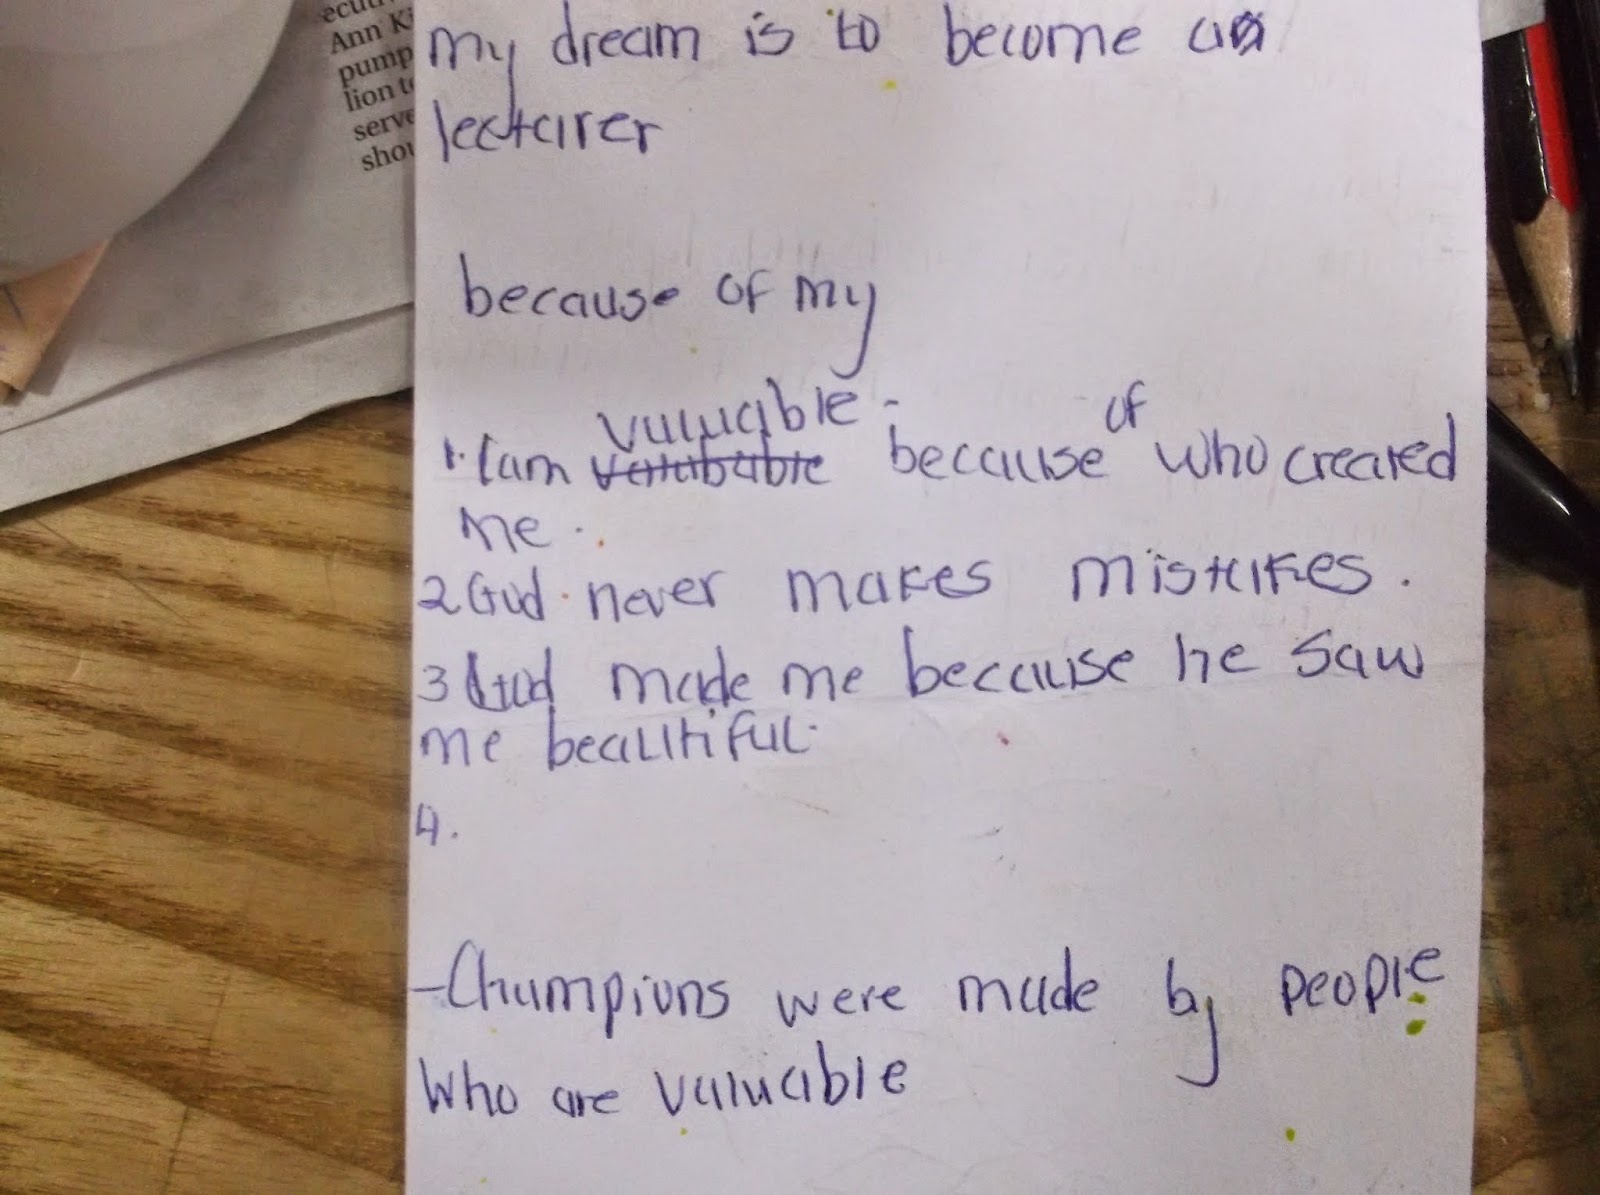 ecuti
Ann Ki
pump
lion t
serve
shou
my dream is to become a
lecturer
because of my
valuable -
1. I am because of who created
me.
2 God never makes mistakes.
3 God made me because he saw
me beautiful.
4.
- Champions were made by people
who are valuable